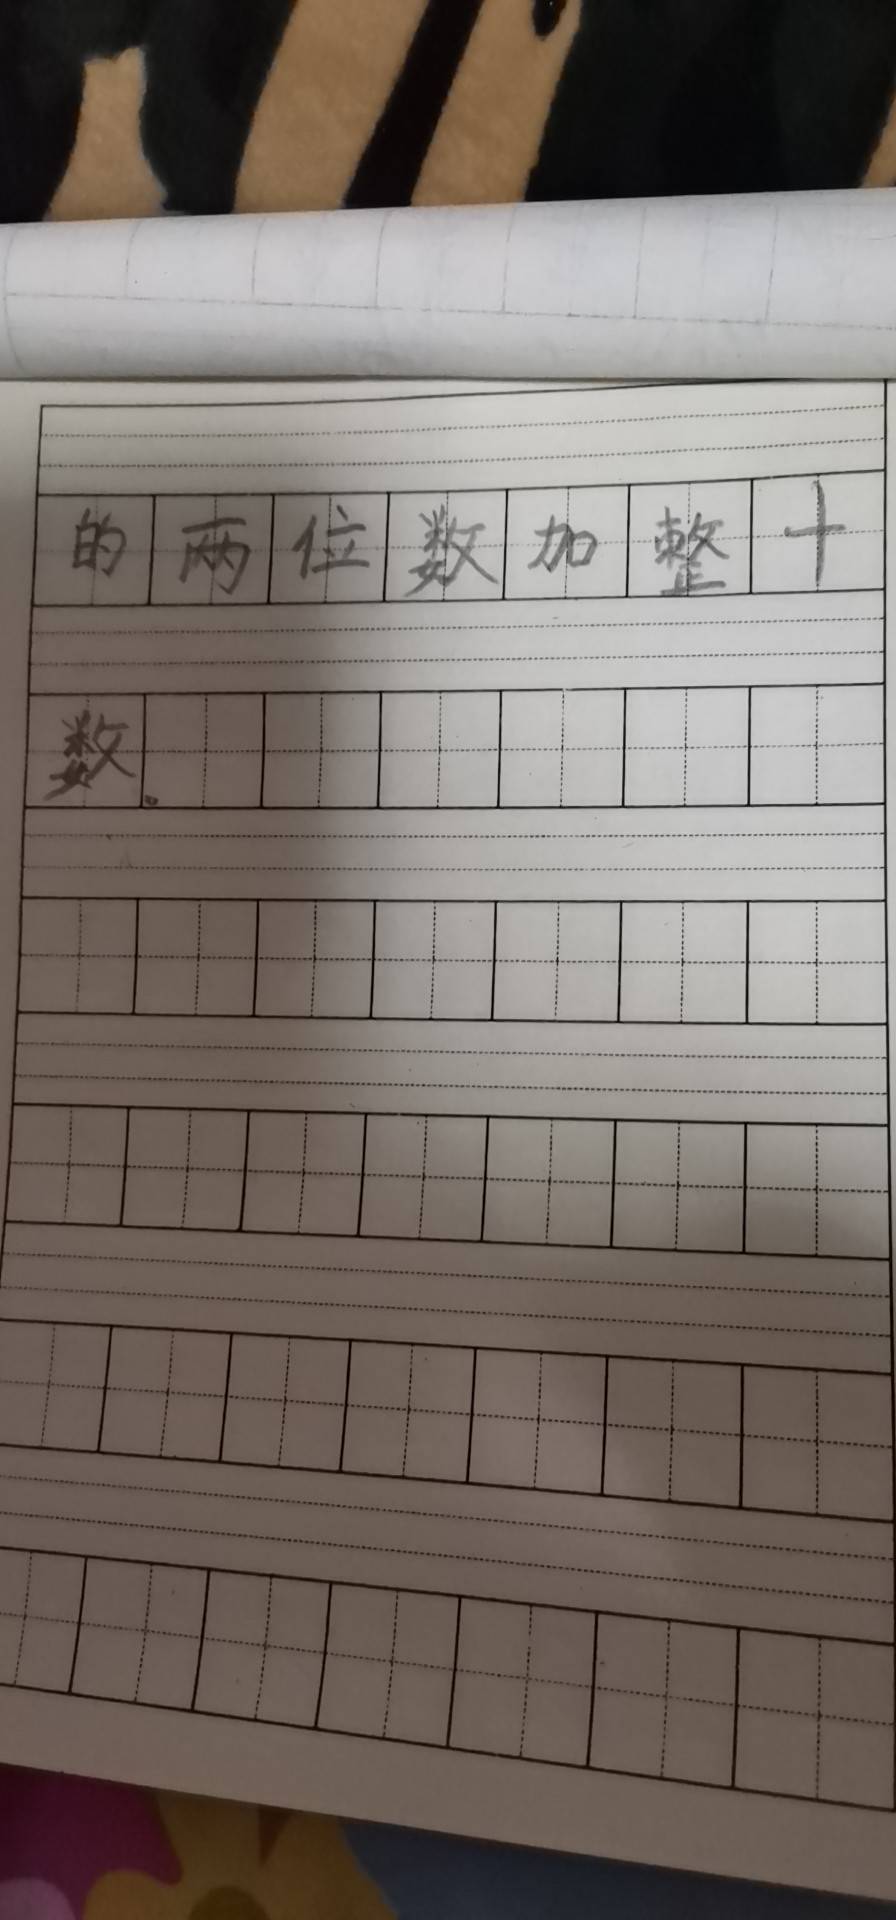 的两位数加整十
数。